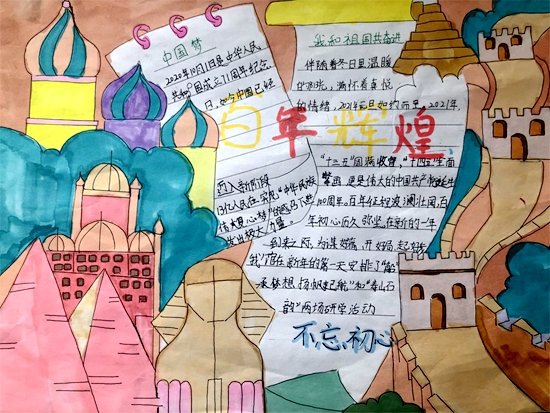 中国梦
2020年10月1日是中华人民
共和国成立71周年纪念
日,如今中国已经
迈入新阶段
13亿人民在实现"中华民族
伟大复兴梦"的路上
发出极大力量。
百年辉煌
我和祖国共奋进
伴随着冬日里温暖
的阳光,满怀着喜悦
的情绪,2021年元旦如约而至,2021年,
"十三五"圆满收官,"十四五"全面
擘画,更是伟大的中国共产党诞生
100周年。百年征程波澜壮阔,百
年初心历久弥坚,在新的一年
到来之际,为谋好篇、开好局、起好步
我们在新年的第一天安排了"
承梦想,扬帆起航"和"泰山石
韵"两场研学活动
不忘初心